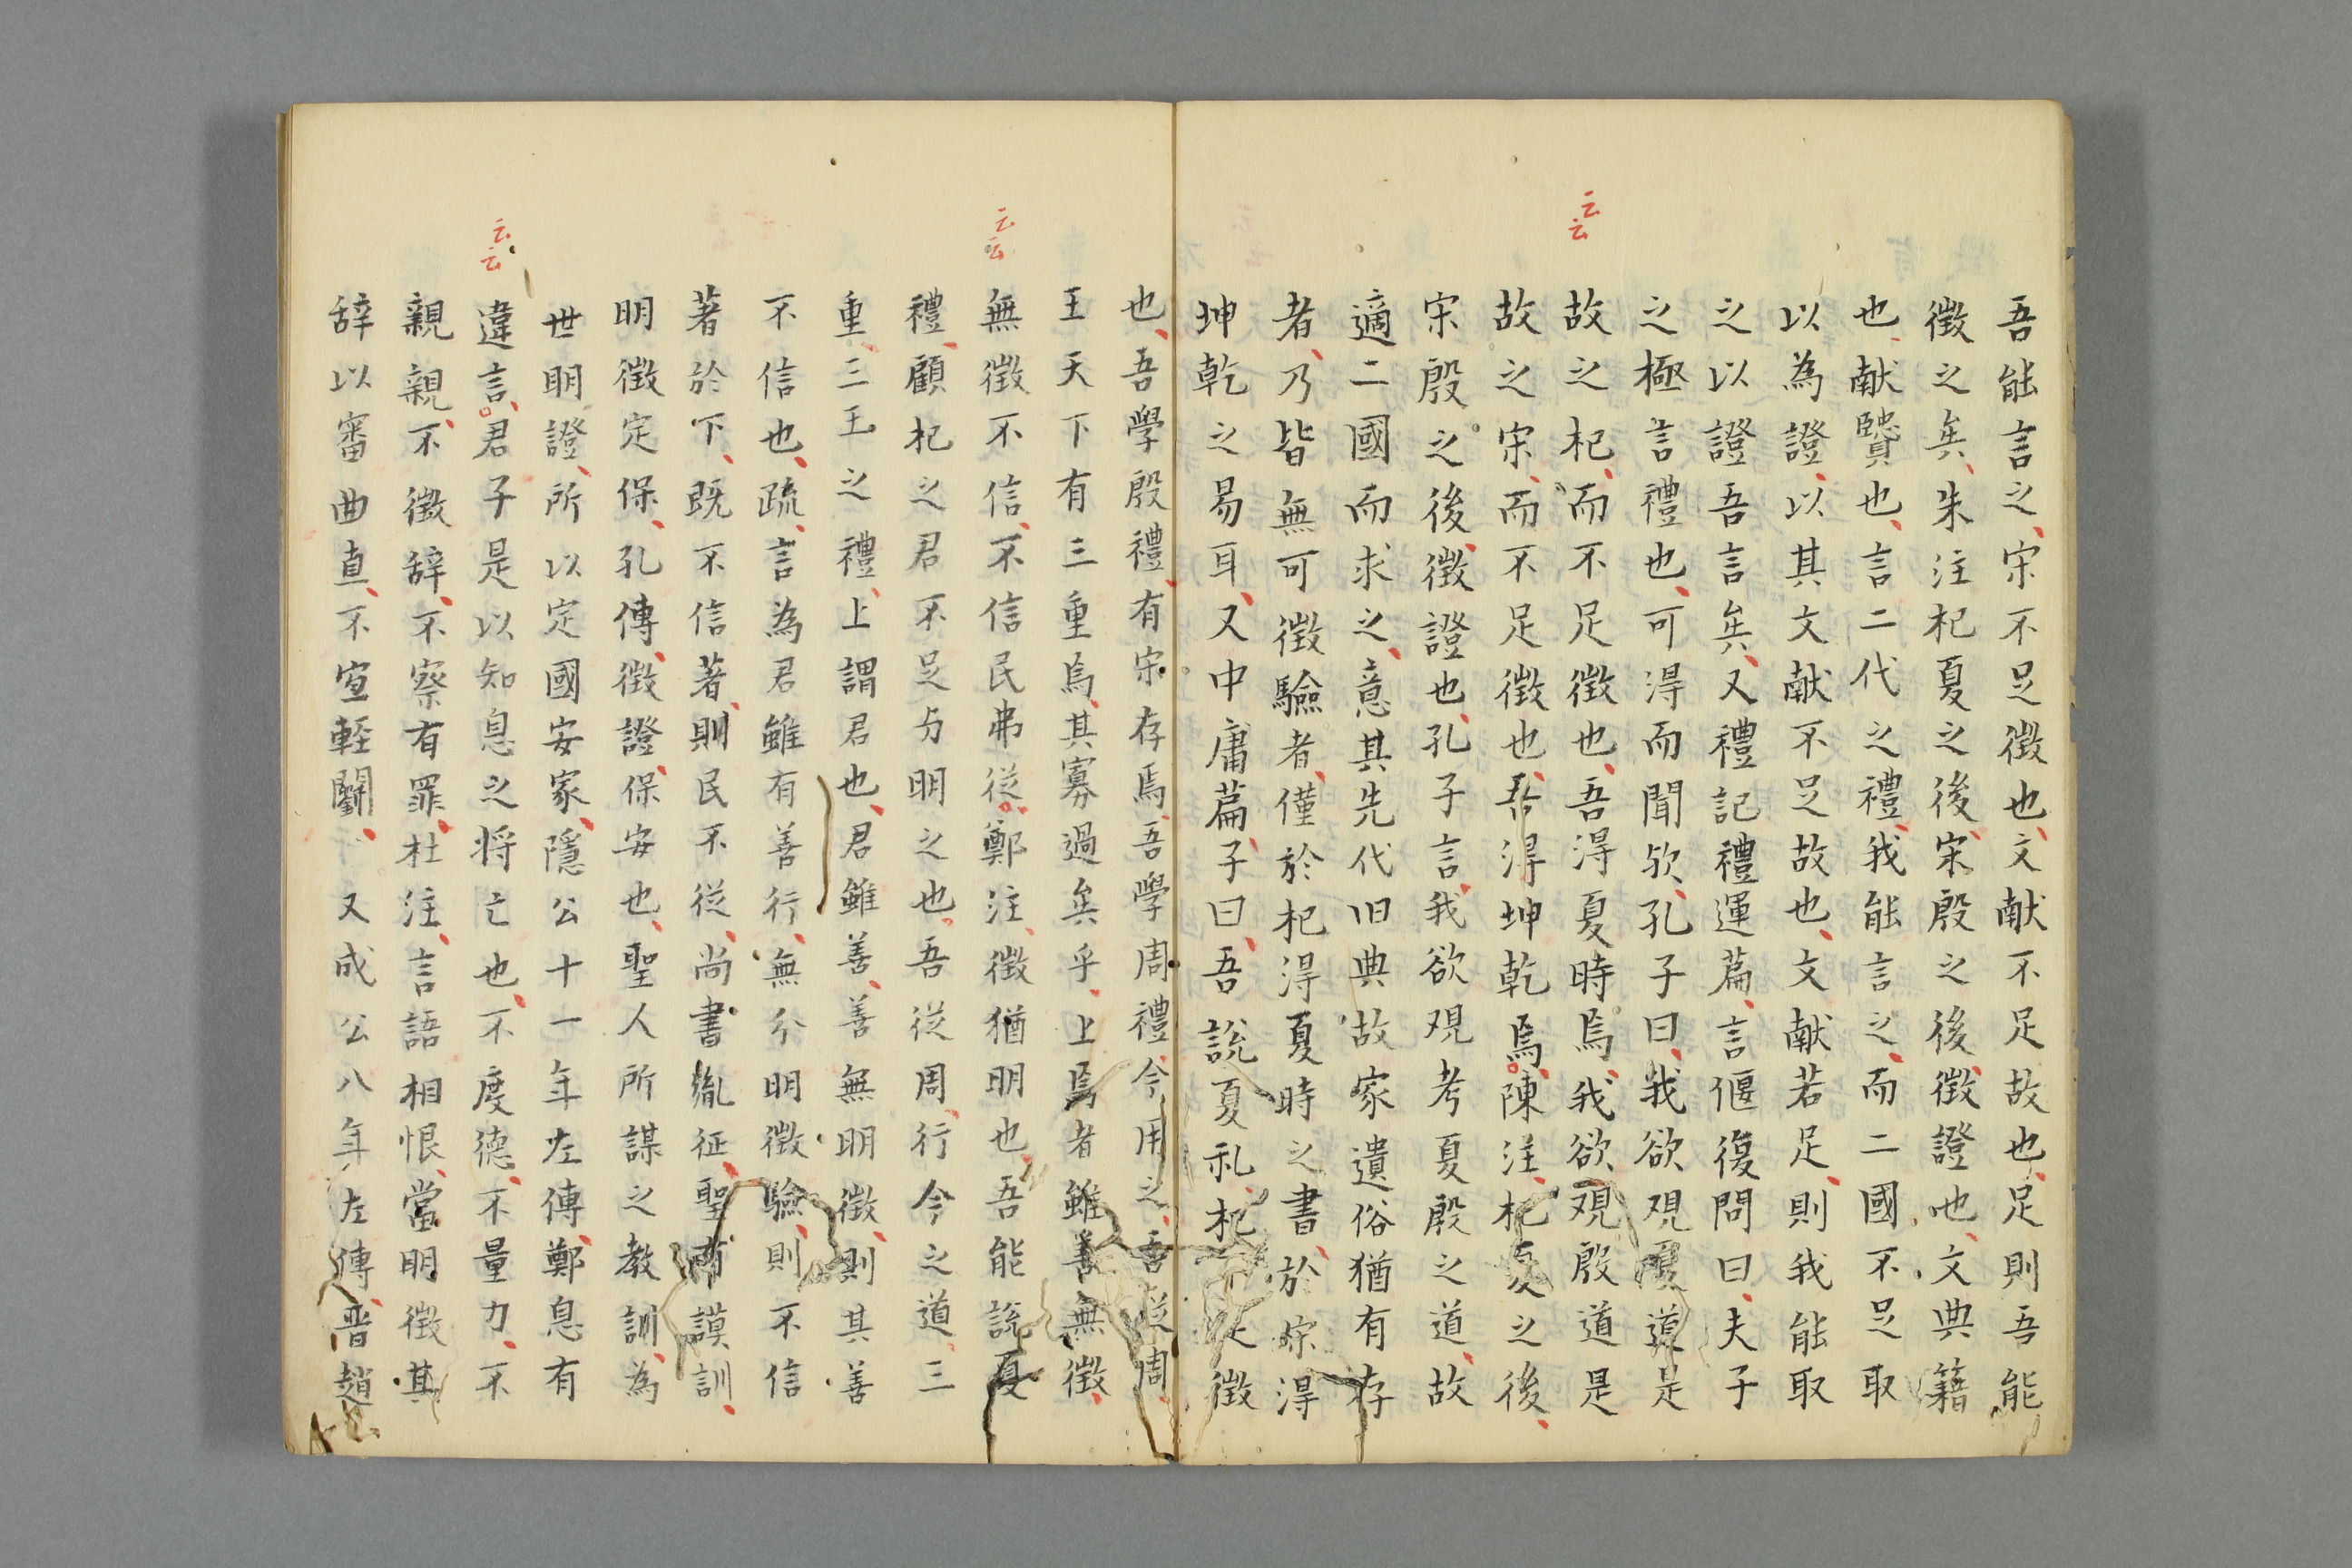 吾能言之宋不足徴也文献不足故也足則吾能
徴之矣朱注杞夏之後宋殷之後徴證也文典籍
也献賢也言二代之禮我能言之而二國不足取
以為證以其文献不足故也文献若足則我能取
之以證吾言矣又禮記禮運篇言偃復問曰夫子
之極言禮也可得而聞欤孔子曰我欲覌夏道是
云云
故之杞而不足徴也吾得夏時焉我欲覌殷道是
故之宋而不足徴也吾得坤乾焉陳注杞夏之後
宋殷之後徴證也孔子言我欲覌考夏殷之道故
適二國而求之意其先代旧典故家遺俗猶有存
者乃皆無可徴驗者僅於杞得夏時之書於宗得
坤乾之易耳又中庸篇子曰吾説夏礼杞不足徴
也吾學殷禮有宋存焉吾學周禮今用之吾従周
王天下有三重焉其寡過矣乎上焉者雖善無徴
云云
無徴不信不信民弗従鄭注徴猶明也吾能説夏
禮顧杞之君不足与明之也吾従周行今之道三
重三王之禮上謂君也君雖善善無明徴則其善
不信也疏言為君雖有善行無分明徴驗則不信
著於下既不信著則民不従尚書胤征聖有謨訓
明徴定保孔傳徴證保安也聖人所謀之教訓為
世明證所以定國安家隱公十一年左傳鄭息有
云云
違言君子是以知息之将亡也不度德不量力不
親親不徴辞不察有罪杜注言語相恨當明徴其
辞以審曲直不宜輕鬭又成公八年左傳晋趙